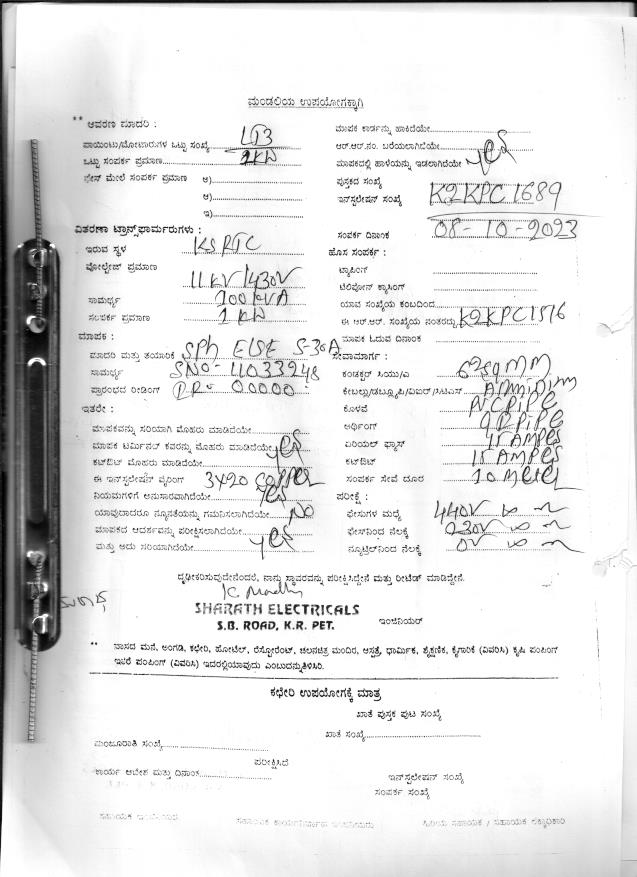 ಮಂಡಲಿಯ ಉಪಯೋಗಕ್ಕಾಗಿ
** ಆವರಣ ಮಾದರಿ :
ಪಾಯಿಂಟು/ಮೋಟಾರುಗಳ ಒಟ್ಟು ಸಂಖ್ಯೆ LT3
ಒಟ್ಟು ಸಂಪರ್ಕ ಪ್ರಮಾಣ 1 KW
ಫೇಸ್ ಮೇಲೆ ಸಂಪರ್ಕ ಪ್ರಮಾಣ ಅ)
ಆ)
ಇ)
ವಿತರಣಾ ಟ್ರಾನ್ಸ್‌ಫಾರ್ಮರುಗಳು :
ಇರುವ ಸ್ಥಳ KSRTC
ವೋಲ್ಟೇಜ್ ಪ್ರಮಾಣ 11 KV/430V
ಸಾಮರ್ಥ್ಯ 100 KVA
ಸಂಪರ್ಕ ಪ್ರಮಾಣ 1 KW
ಮಾಪಕ :
ಮಾದರಿ ಮತ್ತು ತಯಾರಿಕೆ SPh ELSE 5-30A
ಸಾಮರ್ಥ್ಯ SNO- 11033948
ಪ್ರಾರಂಭದ ರೀಡಿಂಗ್ 00000
ಇತರೇ :
ಮಾಪಕವನ್ನು ಸರಿಯಾಗಿ ಮೊಹರು ಮಾಡಿದೆಯೇ
ಮಾಪಕ ಟರ್ಮಿನಲ್ ಕವರನ್ನು ಮೊಹರು ಮಾಡಿದೆಯೇ yes
ಕಟ್‌ಔಟ್ ಮೊಹರು ಮಾಡಿದೆಯೇ
ಈ ಇನ್‌ಸ್ಟಲೇಷನ್ ವೈರಿಂಗ್ 3X20 COPPER
ನಿಯಮಗಳಿಗೆ ಅನುಸಾರವಾಗಿದೆಯೇ yes
ಯಾವುದಾದರೂ ನ್ಯೂನತೆಯನ್ನು ಗಮನಿಸಲಾಗಿದೆಯೇ NO
ಮಾಪಕದ ಆದರ್ಶವನ್ನು ಪರೀಕ್ಷಿಸಲಾಗಿದೆಯೇ
ಮತ್ತು ಅದು ಸರಿಯಾಗಿದೆಯೇ yes
ಮಾಪಕ ಕಾರ್ಡನ್ನು ಹಾಕಿದೆಯೇ
ಆರ್.ಆರ್.ನಂ. ಬರೆಯಲಾಗಿದೆಯೇ
ಮಾಪಕದಲ್ಲಿ ಹಾಳೆಯನ್ನು ಇಡಲಾಗಿದೆಯೇ yes
ಪುಸ್ತಕದ ಸಂಖ್ಯೆ
ಇನ್‌ಸ್ಟಲೇಷನ್ ಸಂಖ್ಯೆ K2KPC 1689
ಸಂಪರ್ಕ ದಿನಾಂಕ 08-10-2023
ಹೊಸ ಸಂಪರ್ಕ :
ಟ್ಯಾಪಿಂಗ್
ಟೆಲಿಫೋನ್ ಕ್ರಾಸಿಂಗ್
ಯಾವ ಸಂಖ್ಯೆಯ ಕಂಬದಿಂದ
ಈ ಆರ್.ಆರ್. ಸಂಖ್ಯೆಯ ನಂತರದ್ದು K2KPC1576
ಮಾಪಕ ಓದುವ ದಿನಾಂಕ
ಸೇವಾಮಾರ್ಗ :
ಕಂಡಕ್ಟರ್ ಸಿಯು/ಎ 6 2sq MM
ಕೇಬಲ್ಲು/ಡಬ್ಲ್ಯೂಪಿ/ವಿಐಆರ್/ಸಿಟಿಎಸ್
ಕೊಳವೆ PVC PIPE
ಅರ್ಥಿಂಗ್ PIPE
ಏರಿಯಲ್ ಫ್ಯೂಸ್ 15 AMPES
ಕಟ್‌ಔಟ್ 15 AMPES
ಸಂಪರ್ಕ ಸೇವೆ ದೂರ 10 Meter
ಪರೀಕ್ಷೆ :
ಫೇಸುಗಳ ಮಧ್ಯೆ 440V
ಫೇಸ್‌ನಿಂದ ನೆಲಕ್ಕೆ 230V
ನ್ಯೂಟ್ರಲ್‌ನಿಂದ ನೆಲಕ್ಕೆ 0V
ದೃಢೀಕರಿಸುವುದೇನೆಂದರೆ, ನಾನು ಸ್ಥಾವರವನ್ನು ಪರೀಕ್ಷಿಸಿದ್ದೇನೆ ಮತ್ತು ರೀಟೆಡ್ ಮಾಡಿದ್ದೇನೆ.
SHARATH ELECTRICALS
S.B. ROAD, K.R. PET. ಇಂಜಿನಿಯರ್
** ವಾಸದ ಮನೆ, ಅಂಗಡಿ, ಕಛೇರಿ, ಹೋಟೆಲ್, ರೆಸ್ಟೋರೆಂಟ್, ಚಲನಚಿತ್ರ ಮಂದಿರ, ಆಸ್ಪತ್ರೆ, ಧಾರ್ಮಿಕ, ಶೈಕ್ಷಣಿಕ, ಕೈಗಾರಿಕೆ (ವಿವರಿಸಿ) ಕೃಷಿ ಪಂಪಿಂಗ್
ಇತರೆ ಪಂಪಿಂಗ್ (ವಿವರಿಸಿ) ಇದರಲ್ಲಿಯಾವುದು ಎಂಬುದನ್ನುತಿಳಿಸಿರಿ.
ಕಛೇರಿ ಉಪಯೋಗಕ್ಕೆ ಮಾತ್ರ
ಖಾತೆ ಪುಸ್ತಕ ಪುಟ ಸಂಖ್ಯೆ
ಖಾತೆ ಸಂಖ್ಯೆ
ಮಂಜೂರಾತಿ ಸಂಖ್ಯೆ
ಪರೀಕ್ಷಿಸಿದೆ
ಕಾರ್ಯ ಆದೇಶ ಮತ್ತು ದಿನಾಂಕ
ಇನ್‌ಸ್ಟಲೇಷನ್ ಸಂಖ್ಯೆ
ಸಂಪರ್ಕ ಸಂಖ್ಯೆ
ಸಹಾಯಕ ಇಂಜಿನಿಯರು
ಸಹಾಯಕ ಕಾರ್ಯನಿರ್ವಾಹಕ ಇಂಜಿನಿಯರು
ಹಿರಿಯ ಸಹಾಯಕ / ಸಹಾಯಕ ಲೆಕ್ಕಾಧಿಕಾರಿ